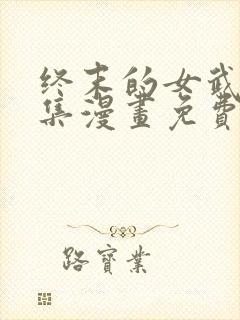 终末的女武
集漫畫免費
路寶業